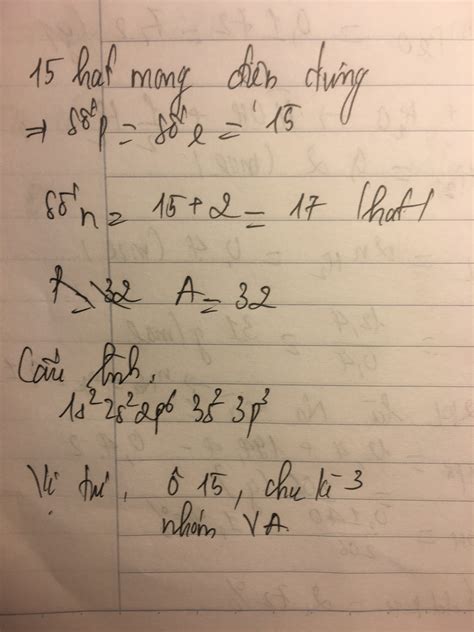 15 hạt mang điện dương
⇒ số p = số e = 15
số n = 15 + 2 = 17 (hạt)
A = 32 A = 32
Cấu hình,
1s² 2s² 2p⁶ 3s² 3p³
Vị trí, ô 15, chu kì 3
nhóm VA.